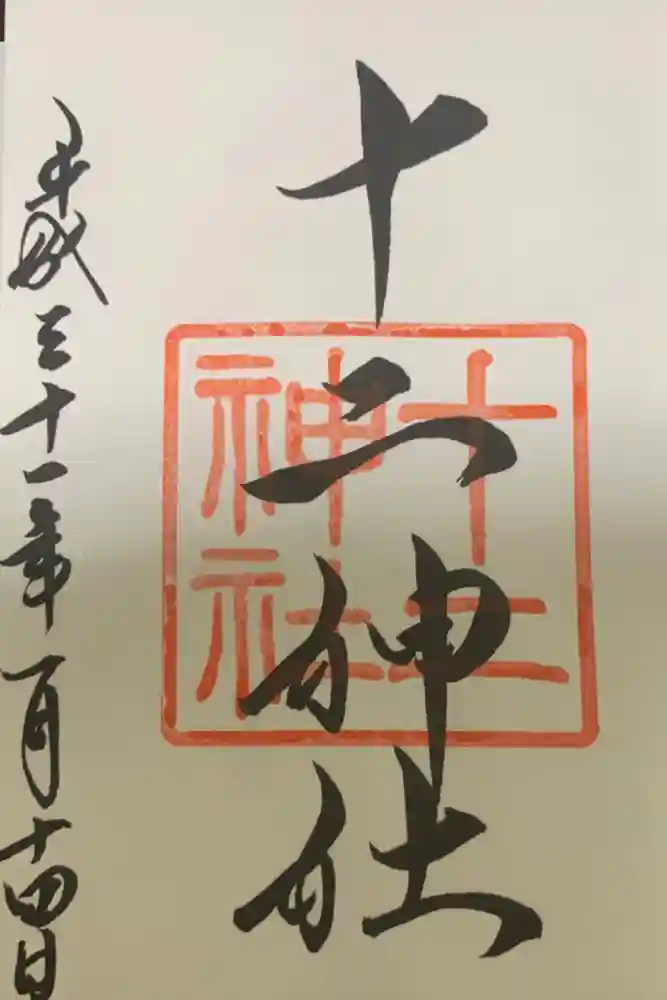 十二神社
十二
神社
平成三十一年一月十四日